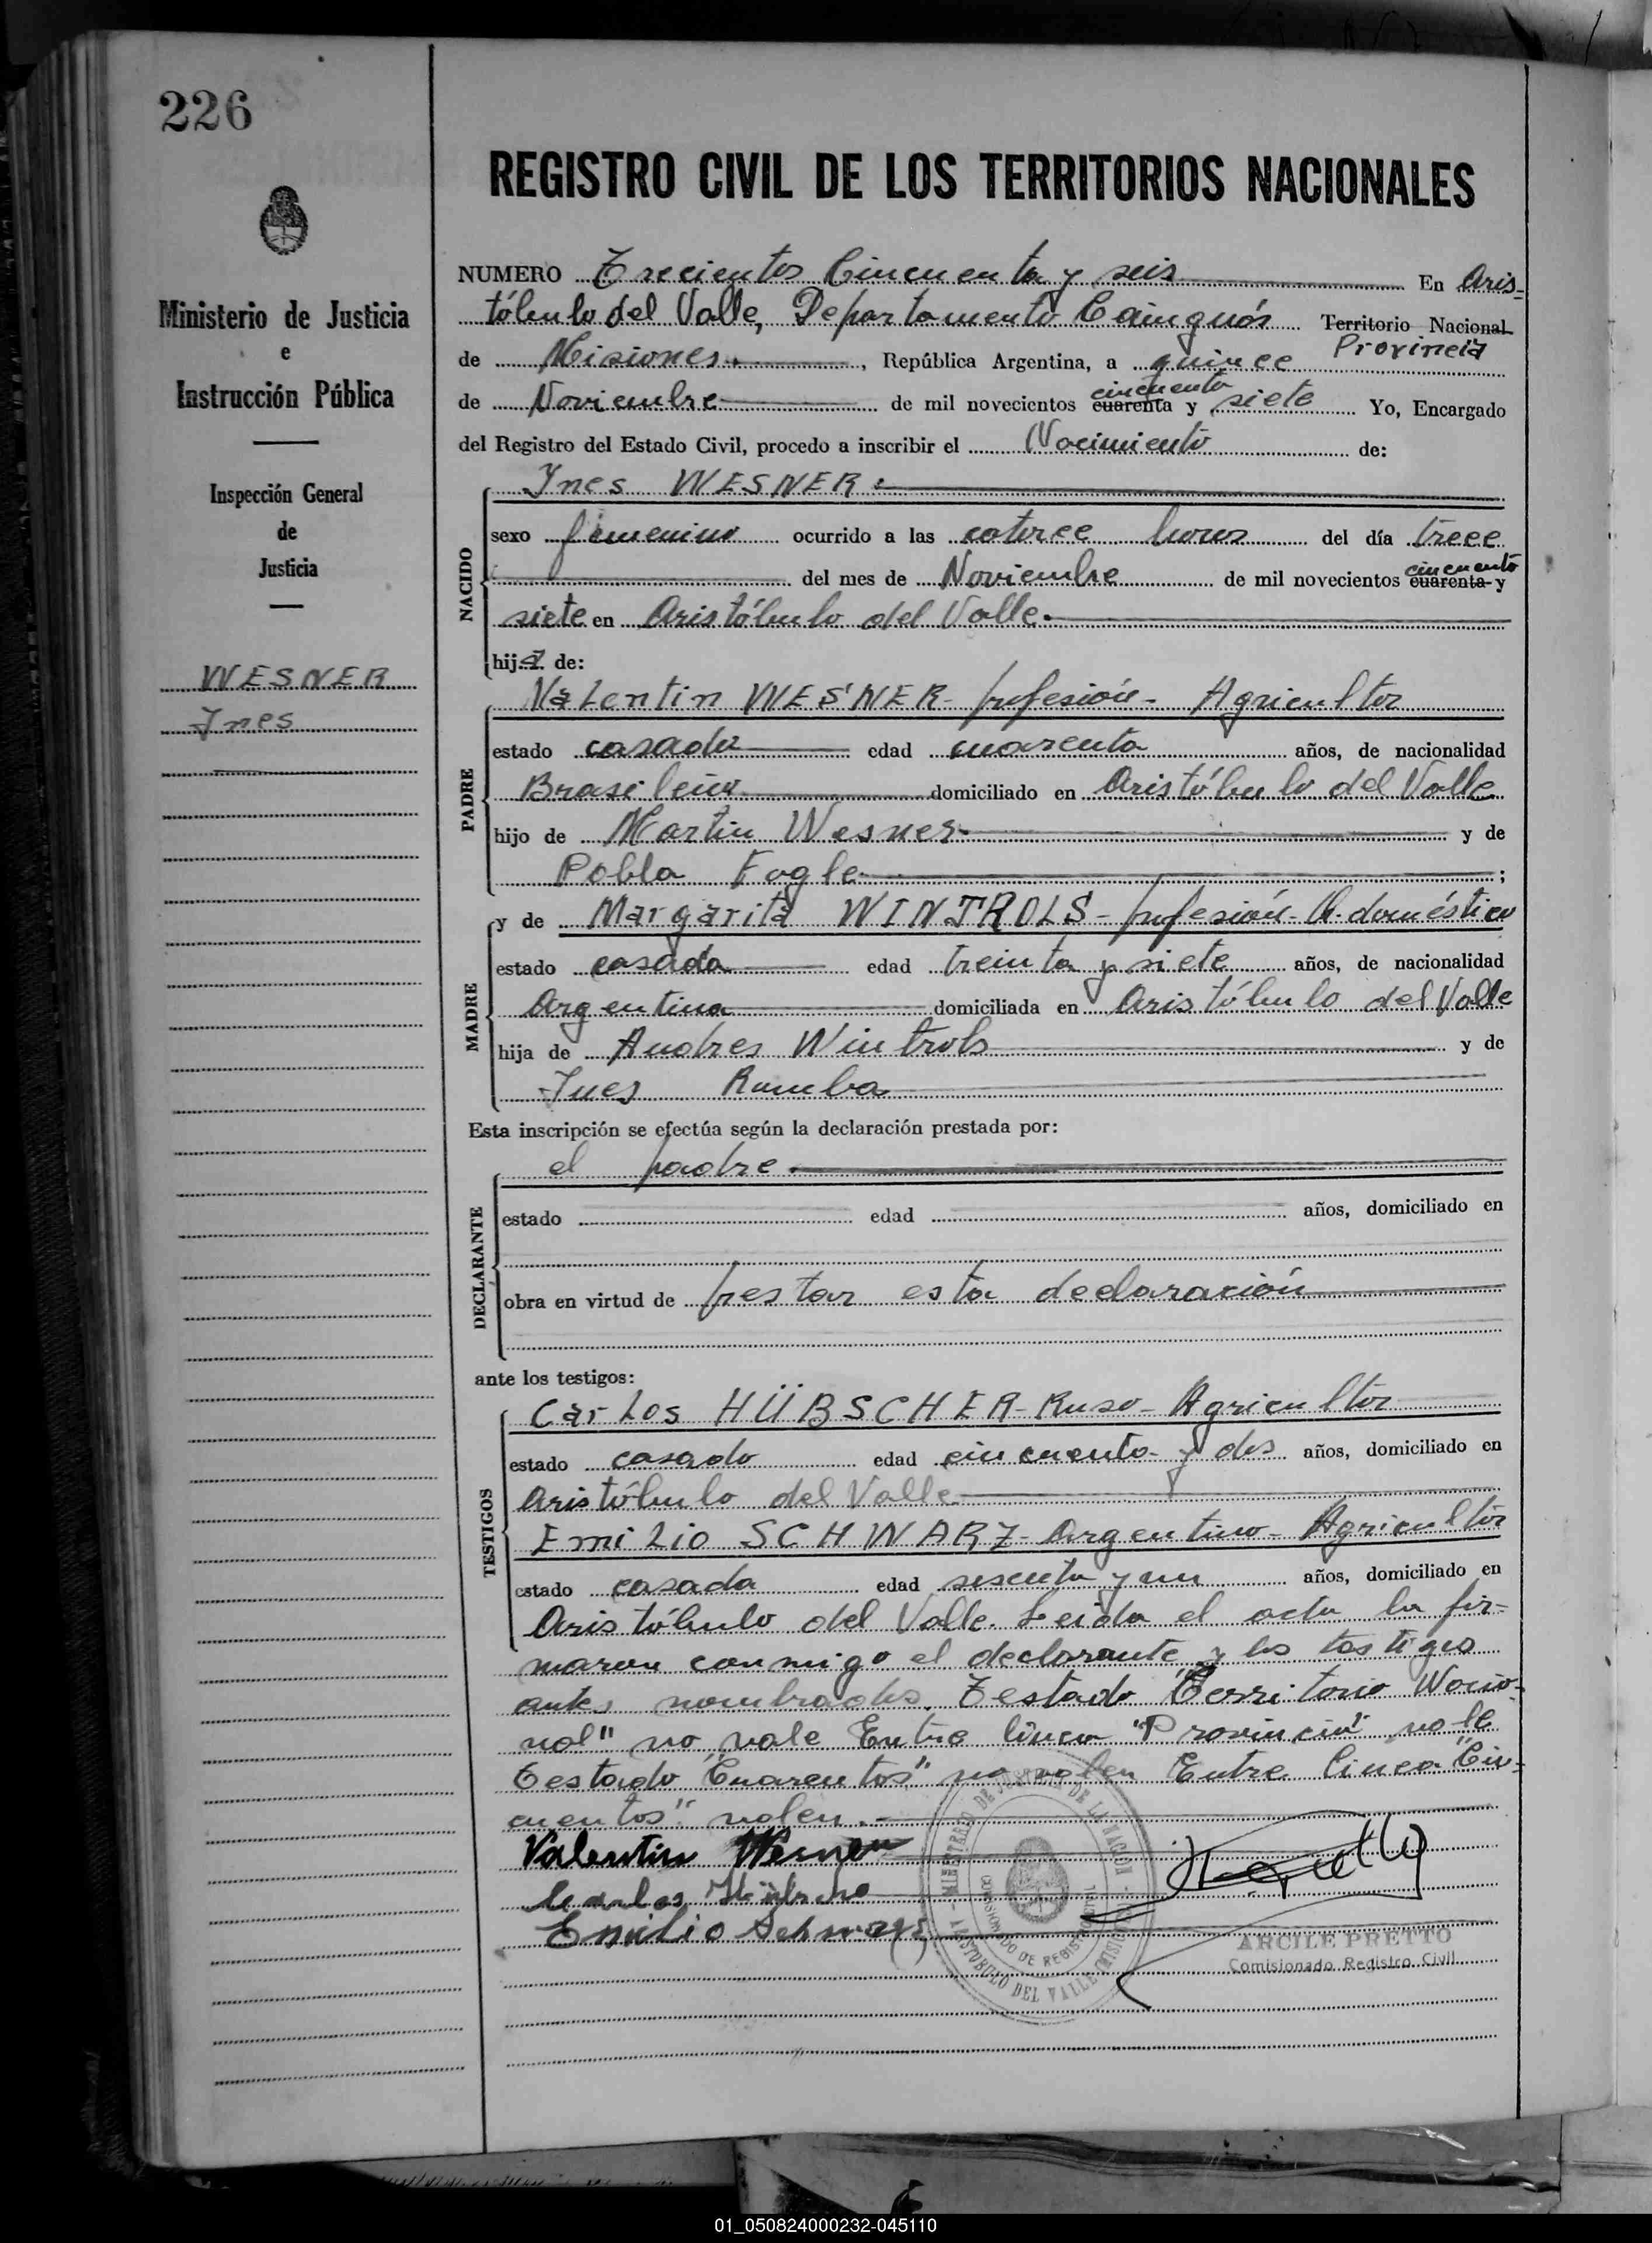 226
REGISTRO CIVIL DE LOS TERRITORIOS NACIONALES
Ministerio de Justicia
e
Instrucción Pública
Inspección General
de
Justicia
WESNER
Ines
NUMERO Trecientos Cincuenta y seis En Aris-
tóbulo del Valle, Departamento Cainguás Territorio Nacional
Provincia
de Misiones, República Argentina, a quince
de Noviembre de mil novecientos cuarenta y siete Yo, Encargado
cincuenta
del Registro del Estado Civil, procedo a inscribir el Nacimiento de:
NACIDO
Ines WESNER
sexo femenino ocurrido a las catorce horas del día trece
del mes de Noviembre de mil novecientos cuarenta y
cincuenta
siete en Aristóbulo del Valle.
hija de:
PADRE
Valentin WESNER - profesión - Agricultor
estado casado edad cuarenta años, de nacionalidad
Brasileña domiciliado en Aristóbulo del Valle
hijo de Martin Wesner y de
Pobla Fogle ;
MADRE
y de Margarita WINTROLS - profesión - Q. doméstico
estado casada edad treinta y siete años, de nacionalidad
Argentina domiciliada en Aristóbulo del Valle
hija de Andres Wintrols y de
Ines Rumba
Esta inscripción se efectúa según la declaración prestada por:
DECLARANTE
el padre
estado edad años, domiciliado en
obra en virtud de prestar esta declaración
ante los testigos:
TESTIGOS
Carlos HÜBSCHER - Ruso - Agricultor
estado casado edad cincuenta y dos años, domiciliado en
Aristóbulo del Valle
Emilio SCHWARZ - Argentino - Agricultor
estado casada edad sesenta y un años, domiciliado en
Aristóbulo del Valle. Leida el acta la fir-
maron conmigo el declarante y los testigos
antes nombrados. Testado "Territorio Nacio-
nal" no vale Entre linea "Provincia" vale
Testado "Cuarentos" no valen Entre linea "Cin-
cuentos" valen.-
Valentin Wesner
Carlos Hübscher
Emilio Schwarz
MINISTERIO DE JUSTICIA DE LA NACION
COMISIONADO DE REGISTRO CIVIL
ARISTOBULO DEL VALLE (MISIONES)
ARCILE PRETTO
Comisionado Registro Civil
01_050824000232-045110